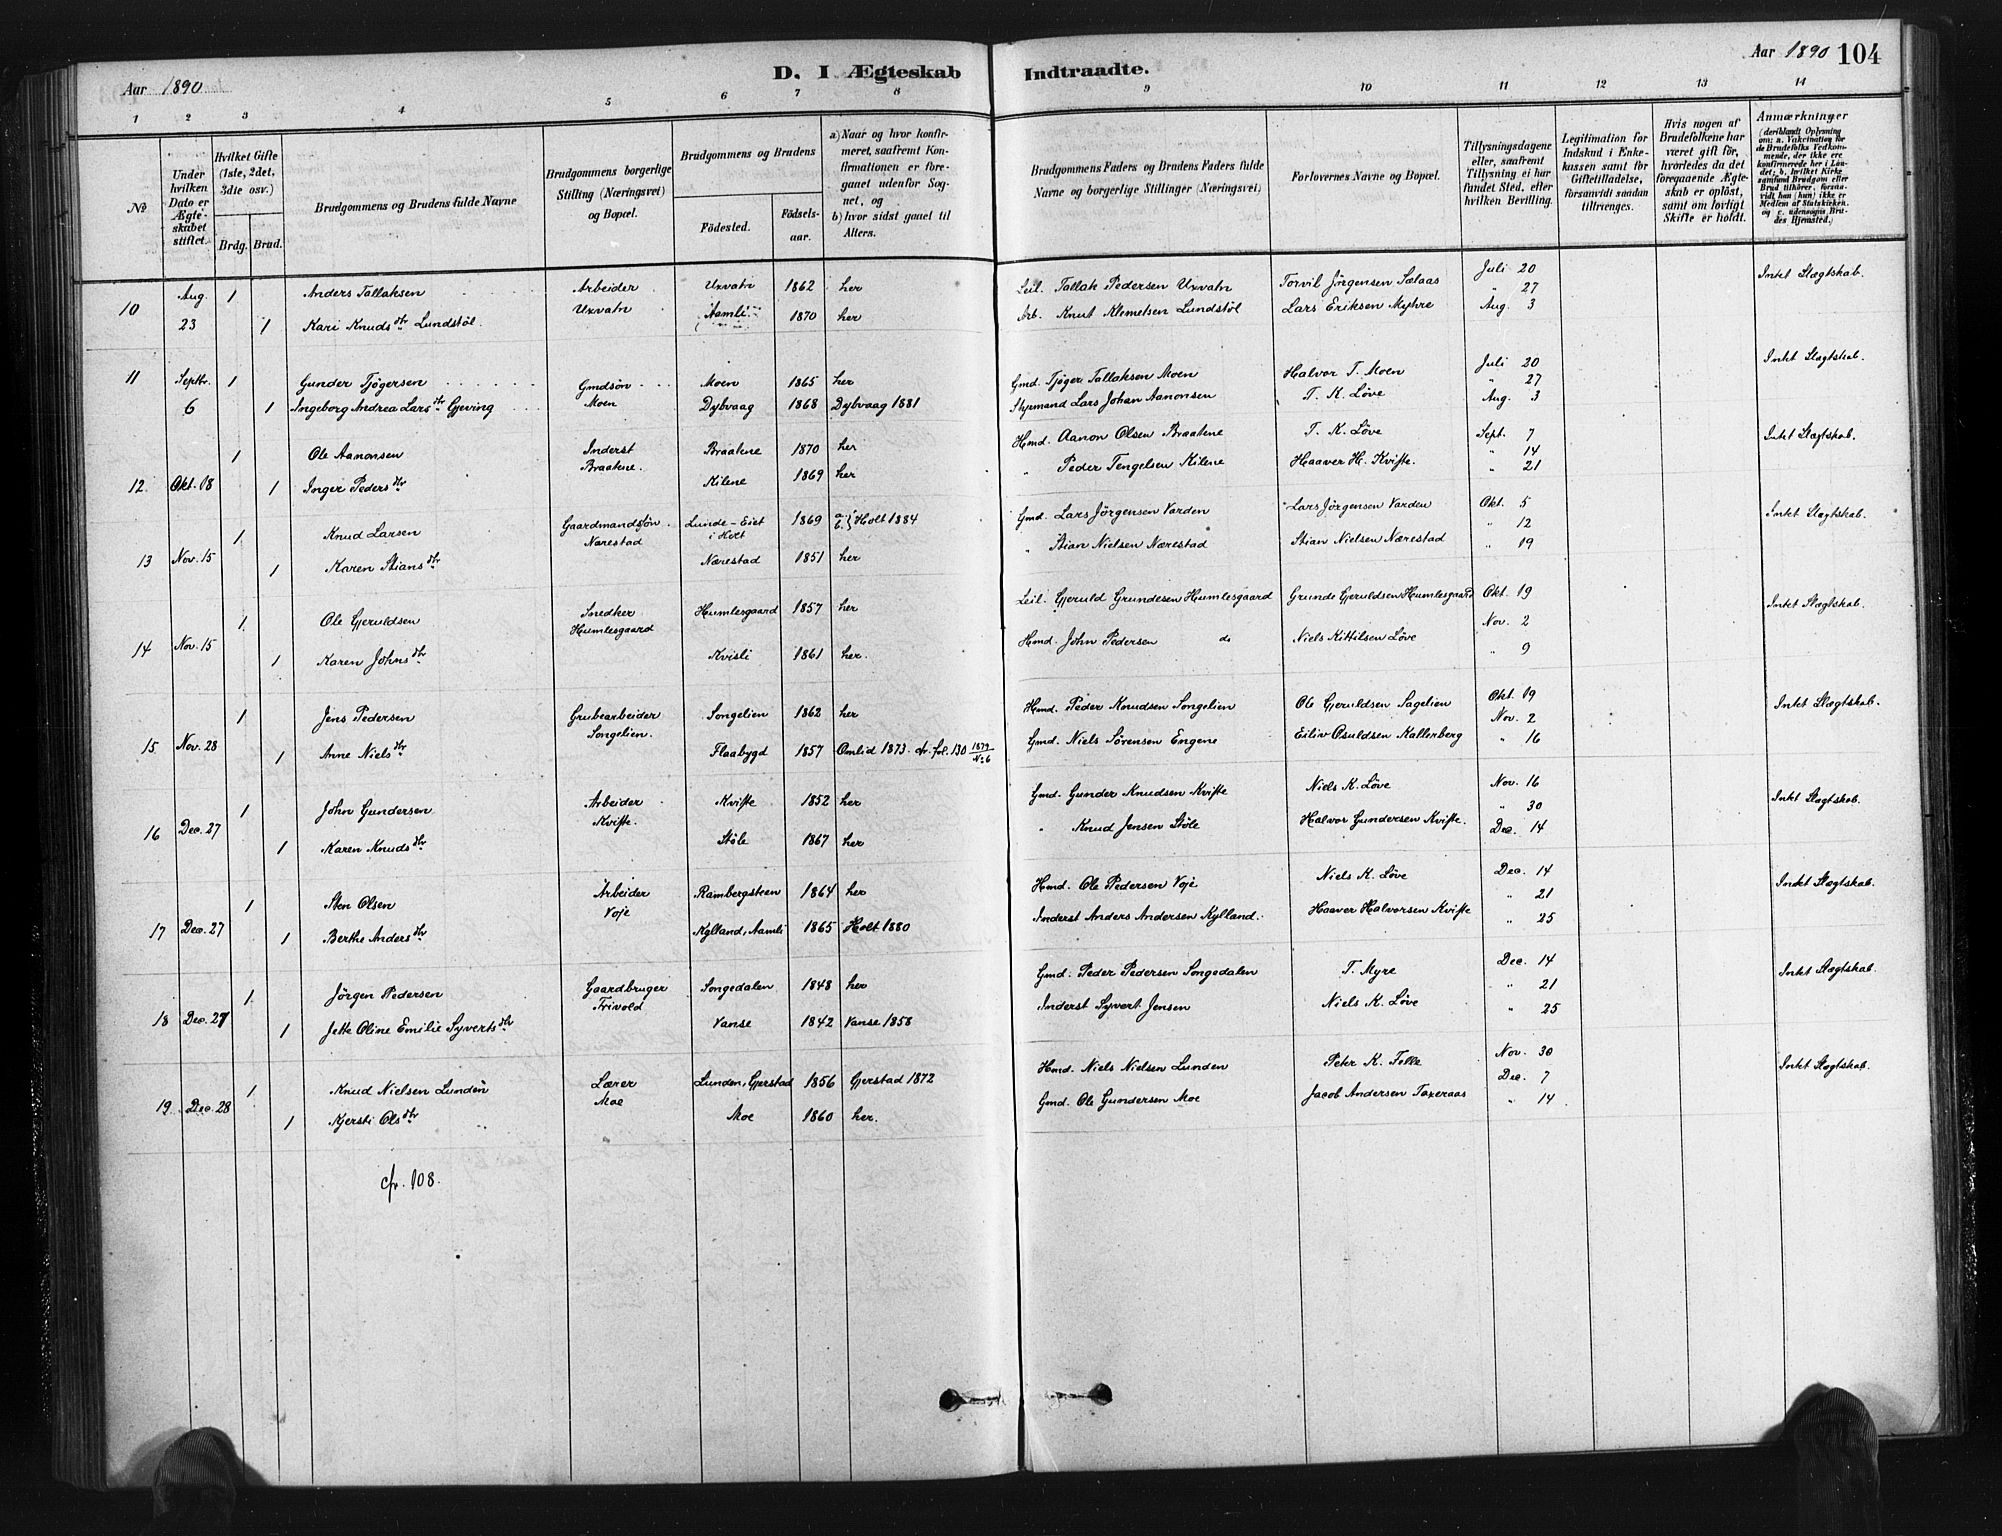 Aar 1890
D. I Ægteskab Indtraadte.
Aar 1890 104
1 2 3 4 5 6 7 8 9 10 11 12 13 14
№
Under hvilken Dato er Ægteskabet stiftet.
Hvilket Gifte (1ste, 2det, 3dte osv.)
Brdg. Brud.
Brudgommens og Brudens fulde Navne
Brudgommens borgerlige Stilling (Næringsvei) og Bopæl.
Brudgommens og Brudens
Fødested. Fødselsaar.
a) Naar og hvor konfirmeret, saafremt Konfirmationen er foregaaet udenfor Sognet, og
b) hvor sidst gaaet til Alters.
Brudgommens Faders og Brudens Faders fulde Navne og borgerlige Stillinger (Næringsvei)
Forlovernes Navne og Bopæl.
Tillysningsdagene eller, saafremt Tillysning ei har fundet Sted, efter hvilken Bevilling.
Legitimation for Indskud i Enkekassen samt for Giftetilladelse, forsaavidt saadan tiltrænges.
Hvis nogen af Brudefolkene har været gift før, hvorledes da det foregaaende Ægteskab er opløst, samt om lovligt Skifte er holdt.
Anmærkninger
(deriblandt Oplysning om: a. Vakcination for de Brudefolks Vedkommende, der ikke ere konfirmerede her i Landet; b. hvilket Kirkesamfund Brudgom eller Brud tilhører, forsaavidt han (hun) ikke er Medlem af Statskirken, og c. udensogns Brudes Hjemsted.)
10 Aug. 23 1 Anders Tallaksen Arbeider Uxvatn Uxvatn 1862 her Leil. Tallak Pedersen Uxvatn Torvil Jørgensen Sælaas Juli 20 Intet Slægtskab.
" 27
1 Kari Knudsdtr Lundstøl. Aamli 1870 her Arb. Knut Klemetsen Lundstøl Lars Eriksen Myhre Aug. 3
11 Septbr. 6 1 Gunder Tjøgersen Gmdsøn Moen Moen 1865 her Gmd. Tjøger Tallaksen Moen Halvor T. Moen Juli 20 Intet Slægtskab.
" 27
1 Ingeborg Andrea Larsdtr Gjeving Dybvaag 1868 Dybvaag 1881 Styrmand Lars Johan Aanonsen T. K. Løve Aug. 3
12. Okt. 18 1 Ole Aanonsen Inderst Braatene. Braatene 1870 her Hmd. Aanon Olsen Braatene T. K. Løve Sept. 7 Intet Slægtskab.
" 14
1 Inger Pedersdtr Kilene 1869 her " Peder Tengelsen Kilene Haaver H. Kviste. " 21
13 Nov. 15 1 Knud Larsen Gaardmandsøn. Nærestad Lunde-Eiet i Holt 1869 a. b. } Holt 1884 Gmd. Lars Jørgensen Varden Lars Jørgensen Varden Okt. 5 Intet Slægtskab.
" 12
1 Karen Stiansdtr Nærestad 1851 her " Stian Nielsen Nærestad Stian Nielsen Nærestad " 19
14 Nov. 15 1 Ole Gjeruldsen Snedker Humlesgaard Humlesgaard 1857 her Leil. Gjeruld Grundesen Humlesgaard Grunde Gjeruldsen Humlesgaard Okt. 19 Intet Slægtskab.
Nov. 2
1 Karen Johnsdtr Kvisli 1861 her. Hmd. John Pedersen do Niels Kittilsen Løve " 9
15 Nov. 28 1 Jens Pedersen Grubearbeider Songelien. Songelien 1862 her Hmd. Peder Knudsen Songelien Ole Gjeruldsen Sagelien Okt. 19 Intet Slægtskab.
Nov. 2
1 Anne Nielsdtr Flaabygd 1857 Omlid 1873. cfr. fol. 130 1879/No 6 Gmd. Niels Sørensen Engene Eiliv Osuldsen Kallerberg " 16
16 Dec. 27 1 John Gundersen Arbeider Kviste. Kviste 1852 her Gmd. Gunder Knudsen Kviste Niels K. Løve Nov. 16 Intet Slægtskab.
" 30
1 Karen Knudsdtr Støle 1867 her " Knud Jensen Støle Halvor Gundersen Kviste. Dec. 14
17 Dec. 27 1 Sten Olsen Arbeider Voje Rambergsteen 1864 her Hmd. Ole Pedersen Voje Niels K. Løve Dec. 14 Intet Slægtskab.
" 21
1 Berthe Andersdtr Kylland, Aamli 1865 Holt 1880 Inderst Anders Andersen Kylland. Haaver Halvorsen Kviste " 25
18 Dec. 27 1 Jørgen Pedersen Gaardbruger Trivold Songedalen 1848 her Gmd. Peder Pedersen Songedalen T. Myre Dec. 14 Intet Slægtskab.
" 21
1 Jette Oline Emilie Syvertsdtr Vanse 1842 Vanse 1858 Inderst Syvert Jensen Niels K. Løve " 25
19. Dec. 28 1 Knud Nielsen Lunden Lærer Moe Lunden, Gjerstad 1856 Gjerstad 1872 Hmd. Niels Nielsen Lunden Peter K. Felle Nov. 30 Intet Slægtskab.
Dec. 7
1 Kjersti Olsdtr Moe 1860 her. Gmd. Ole Gundersen Moe Jacob Andersen Taxeraas " 14
cfr. 108.